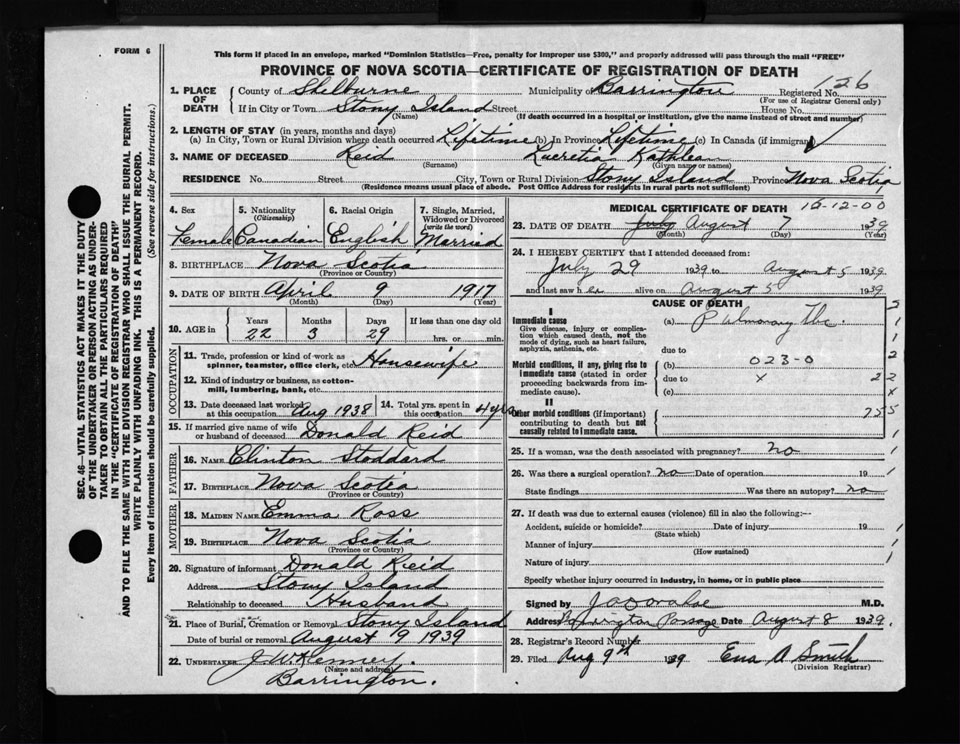 FORM 6
This form if placed in an envelope, marked "Dominion Statistics—Free, penalty for improper use $300," and properly addressed will pass through the mail "FREE"
PROVINCE OF NOVA SCOTIA—CERTIFICATE OF REGISTRATION OF DEATH
1. PLACE OF DEATH
County of Shelburne Municipality of Barrington Registered No. 126
(For use of Registrar General only)
If in City or Town Stony Island Street House No.
(Name) (If death occurred in a hospital or institution, give the name instead of street and number)
2. LENGTH OF STAY (in years, months and days)
(a) In City, Town or Rural Division where death occurred Lifetime (b) In Province Lifetime (c) In Canada (if immigrant)
3. NAME OF DECEASED Reid Lucretia Kathleen
(Surname) (Given name or names)
RESIDENCE No. Street City, Town or Rural Division Stony Island Province Nova Scotia
(Residence means usual place of abode. Post Office Address for residents in rural parts not sufficient)
4. Sex Female
5. Nationality (Citizenship) Canadian
6. Racial Origin English
7. Single, Married, Widowed or Divorced (write the word) Married
8. BIRTHPLACE Nova Scotia
(Province or Country)
9. DATE OF BIRTH April 9 1917
(Month) (Day) (Year)
10. AGE in Years Months Days If less than one day old
22 3 29 hrs. or min.
OCCUPATION
11. Trade, profession or kind of work as spinner, teamster, office clerk, etc. Housewife
12. Kind of industry or business, as cotton-mill, lumbering, bank, etc.
13. Date deceased last worked at this occupation Aug 1938
14. Total yrs. spent in this occupation 4 yrs
15. If married give name of wife or husband of deceased Donald Reid
FATHER
16. NAME Clinton Stoddard
17. BIRTHPLACE Nova Scotia
(Province or Country)
MOTHER
18. MAIDEN NAME Emma Ross
19. BIRTHPLACE Nova Scotia
(Province or Country)
20. Signature of informant Donald Reid
Address Stony Island
Relationship to deceased Husband
21. Place of Burial, Cremation or Removal Stony Island
Date of burial or removal August 9 1939
22. UNDERTAKER J. W. Kenney.
(Name and address)
Barrington.
MEDICAL CERTIFICATE OF DEATH 16-12-00
23. DATE OF DEATH July August 7 1939
(Month) (Day) (Year)
24. I HEREBY CERTIFY that I attended deceased from:
July 29 1939 to August 5 1939
and last saw her alive on August 5 1939
CAUSE OF DEATH
I
Immediate cause (a) Pulmonary Tbc.
Give disease, injury or complication which caused death, not the mode of dying, such as heart failure, asphyxia, asthenia, etc.
due to
Morbid conditions, if any, giving rise to immediate cause (stated in order proceeding backwards from immediate cause)
(b) 023-0
due to x 22
(c) x
II
Other morbid conditions (if important) contributing to death but not causally related to immediate cause.
25. If a woman, was the death associated with pregnancy? no
26. Was there a surgical operation? no Date of operation 19
State findings Was there an autopsy? no
27. If death was due to external causes (violence) fill in also the following:—
Accident, suicide or homicide? Date of injury 19
(State which)
Manner of injury
(How sustained)
Nature of injury
Specify whether injury occurred in industry, in home, or in public place
Signed by M.D.
Address Barrington Passage Date August 8 1939.
28. Registrar's Record Number
29. Filed Aug 9th 1939 Ena A Smith
(Division Registrar)
SEC. 46—VITAL STATISTICS ACT MAKES IT THE DUTY
OF THE UNDERTAKER OR PERSON ACTING AS UNDERTAKER
"TO OBTAIN ALL THE PARTICULARS REQUIRED
IN THE "CERTIFICATE OF REGISTRATION OF DEATH"
AND TO FILE THE SAME WITH THE DIVISION REGISTRAR WHO SHALL ISSUE THE BURIAL PERMIT.
WRITE PLAINLY WITH UNFADING INK. THIS IS A PERMANENT RECORD.
Every item of information should be carefully supplied. (See reverse side for instructions.)